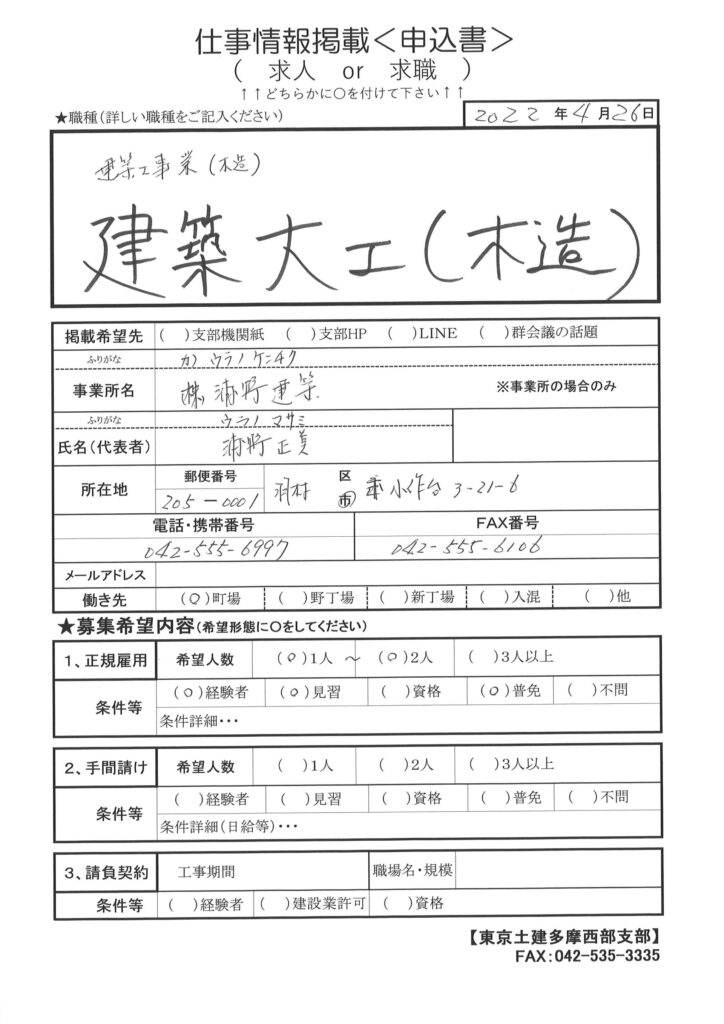 仕事情報掲載<申込書>
( 求人 or 求職 )
↑↑どちらかに○を付けて下さい↑↑
★職種(詳しい職種をご記入ください) 2022 年 4 月 26 日
建築工事業(木造)
建築大工(木造)
掲載希望先 ( )支部機関紙 ( )支部HP ( )LINE ( )群会議の話題
ふりがな カ) ウラノケンチク
事業所名 ㈱浦野建築 ※事業所の場合のみ
ふりがな ウラノ マサミ
氏名(代表者) 浦野正美
所在地 郵便番号 205-0001 羽村 区 市 小作台 3-21-6
電話・携帯番号 FAX番号
042-555-6997 042-555-6106
メールアドレス
働き先 (○)町場 ( )野丁場 ( )新丁場 ( )入混 ( )他
★募集希望内容(希望形態に○をしてください)
1、正規雇用 希望人数 (○)1人 ~ (○)2人 ( )3人以上
条件等 (○)経験者 (○)見習 ( )資格 (○)普免 ( )不問
条件詳細・・・
2、手間請け 希望人数 ( )1人 ( )2人 ( )3人以上
条件等 ( )経験者 ( )見習 ( )資格 ( )普免 ( )不問
条件詳細(日給等)・・・
3、請負契約 工事期間 職場名・規模
条件等 ( )経験者 ( )建設業許可 ( )資格
【東京土建多摩西部支部】
FAX:042-535-3335